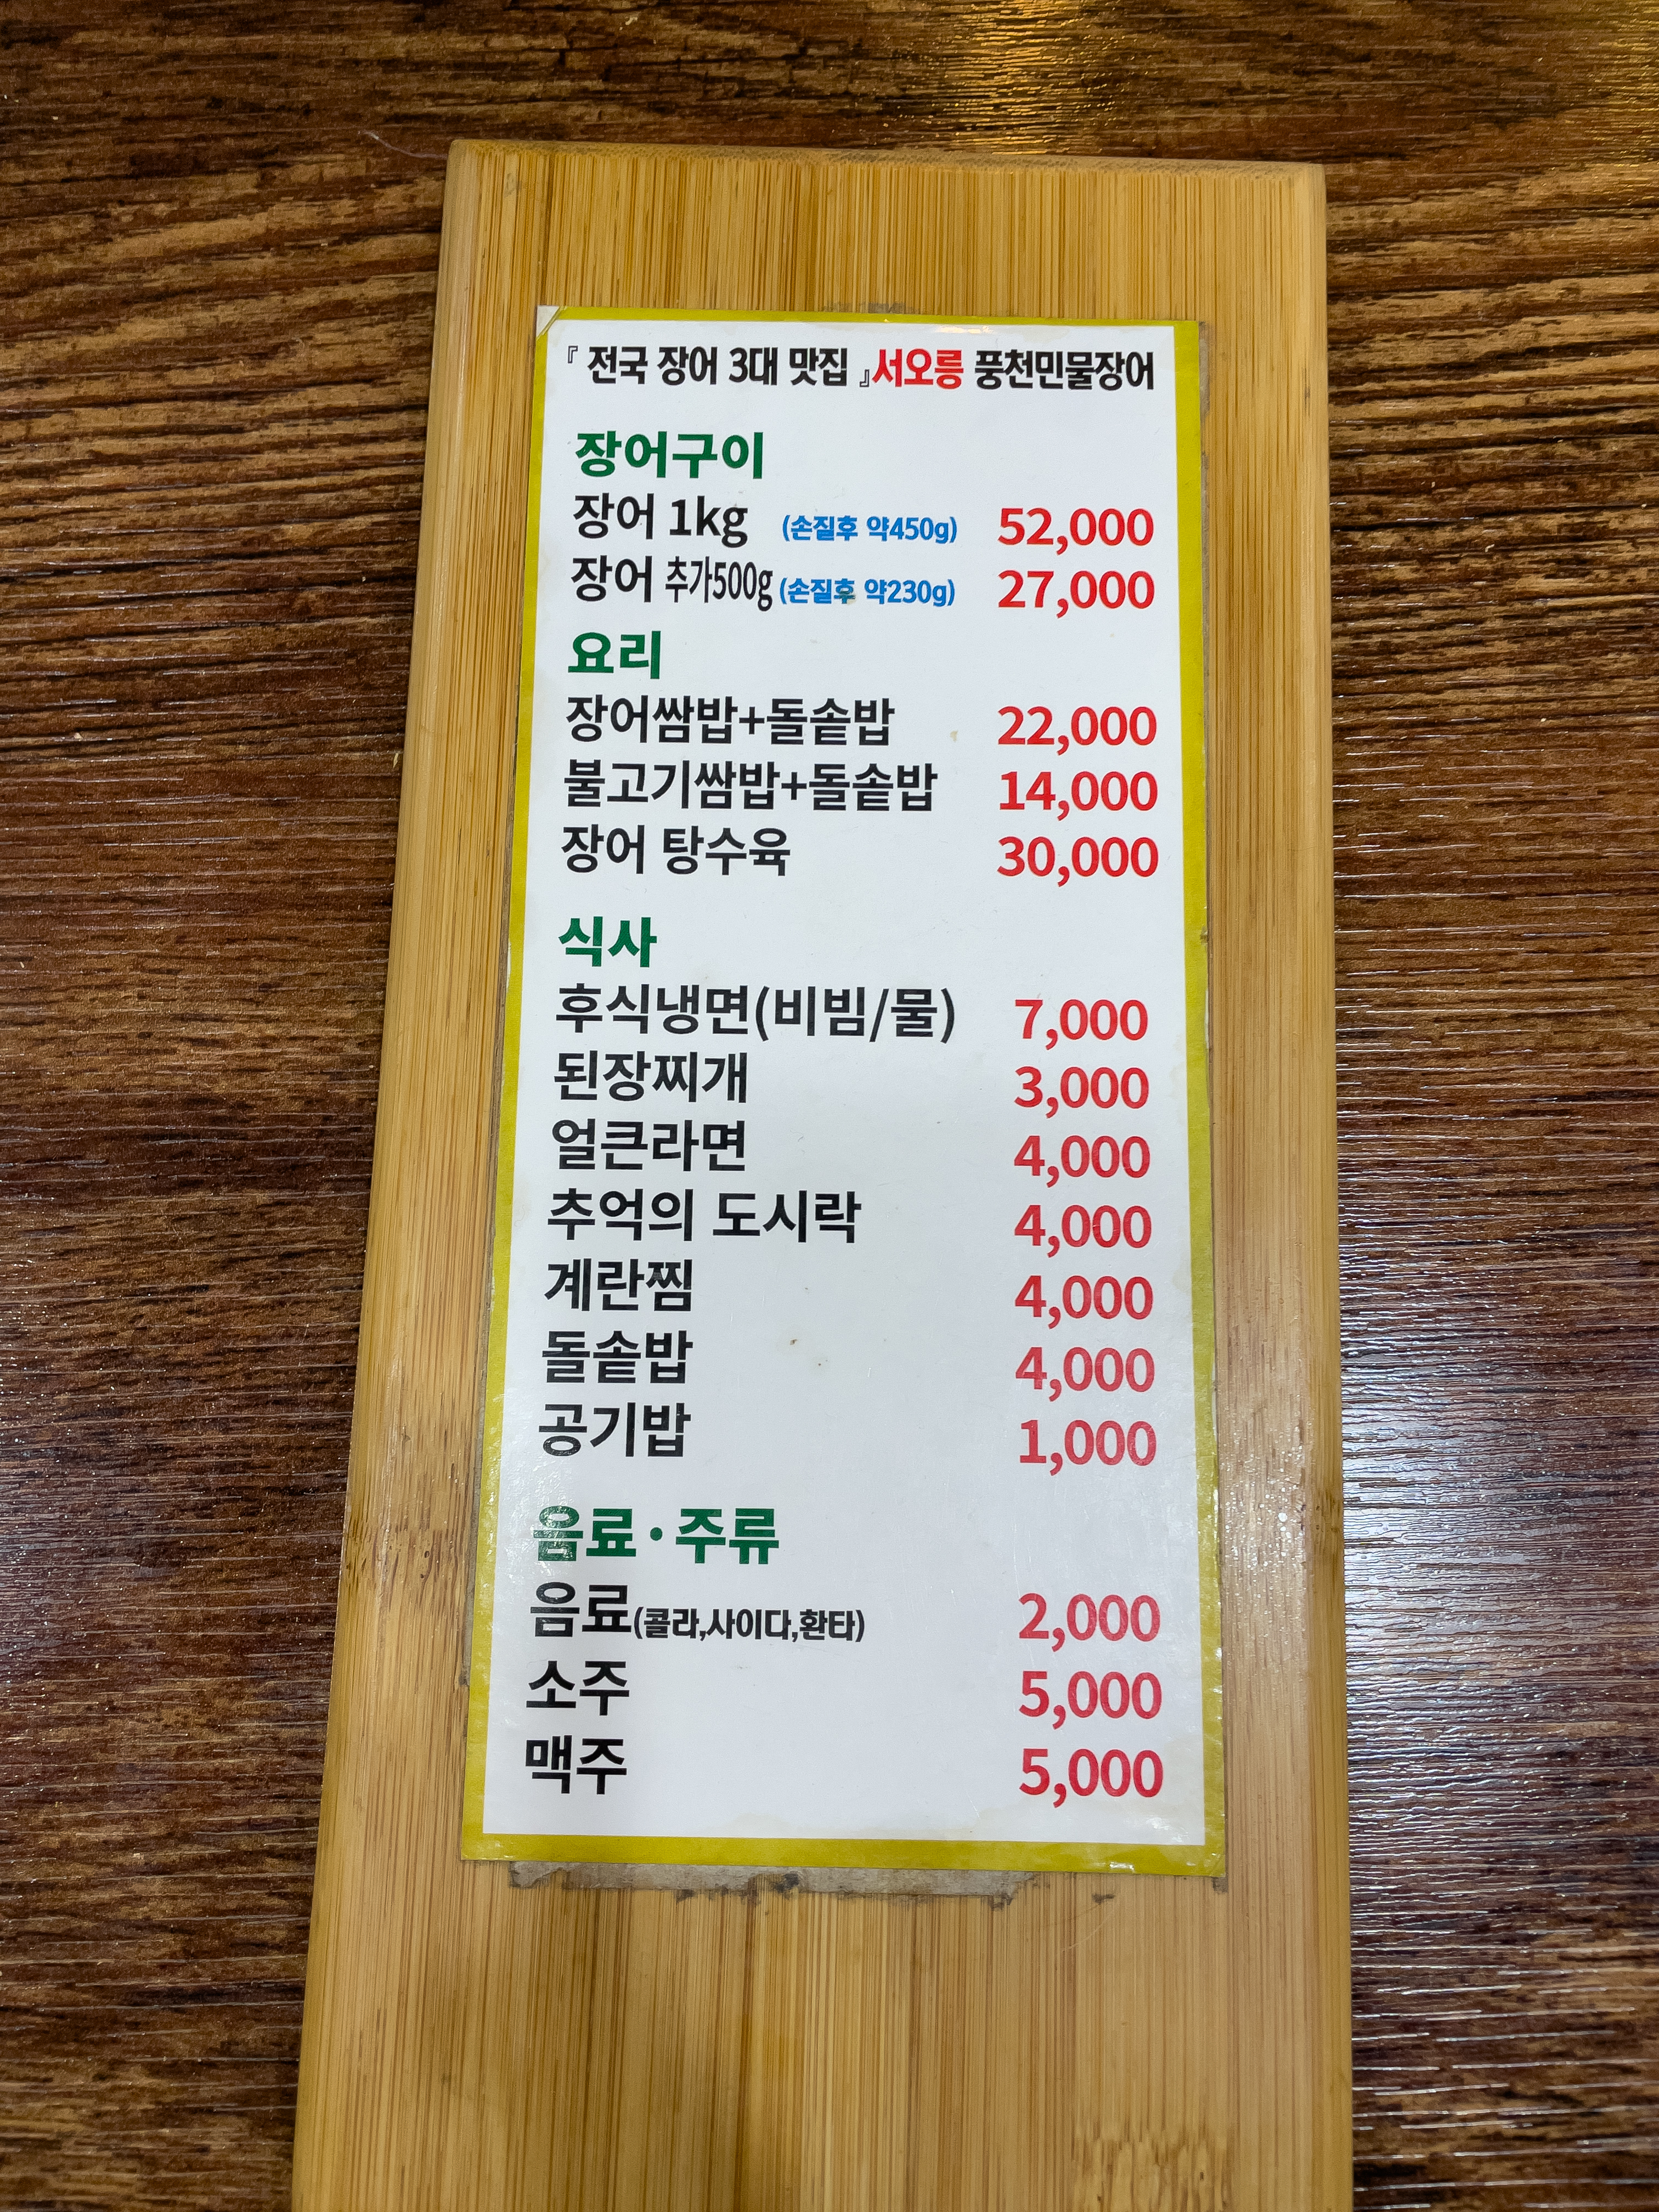 『 전국 장어 3대 맛집 』서오릉 풍천민물장어
장어구이
장어 1kg (손질후 약450g) 52,000
장어 추가500g (손질후 약230g) 27,000
요리
장어쌈밥+돌솥밥 22,000
불고기쌈밥+돌솥밥 14,000
장어 탕수육 30,000
식사
후식냉면(비빔/물) 7,000
된장찌개 3,000
얼큰라면 4,000
추억의 도시락 4,000
계란찜 4,000
돌솥밥 4,000
공기밥 1,000
음료·주류
음료(콜라,사이다,환타) 2,000
소주 5,000
맥주 5,000